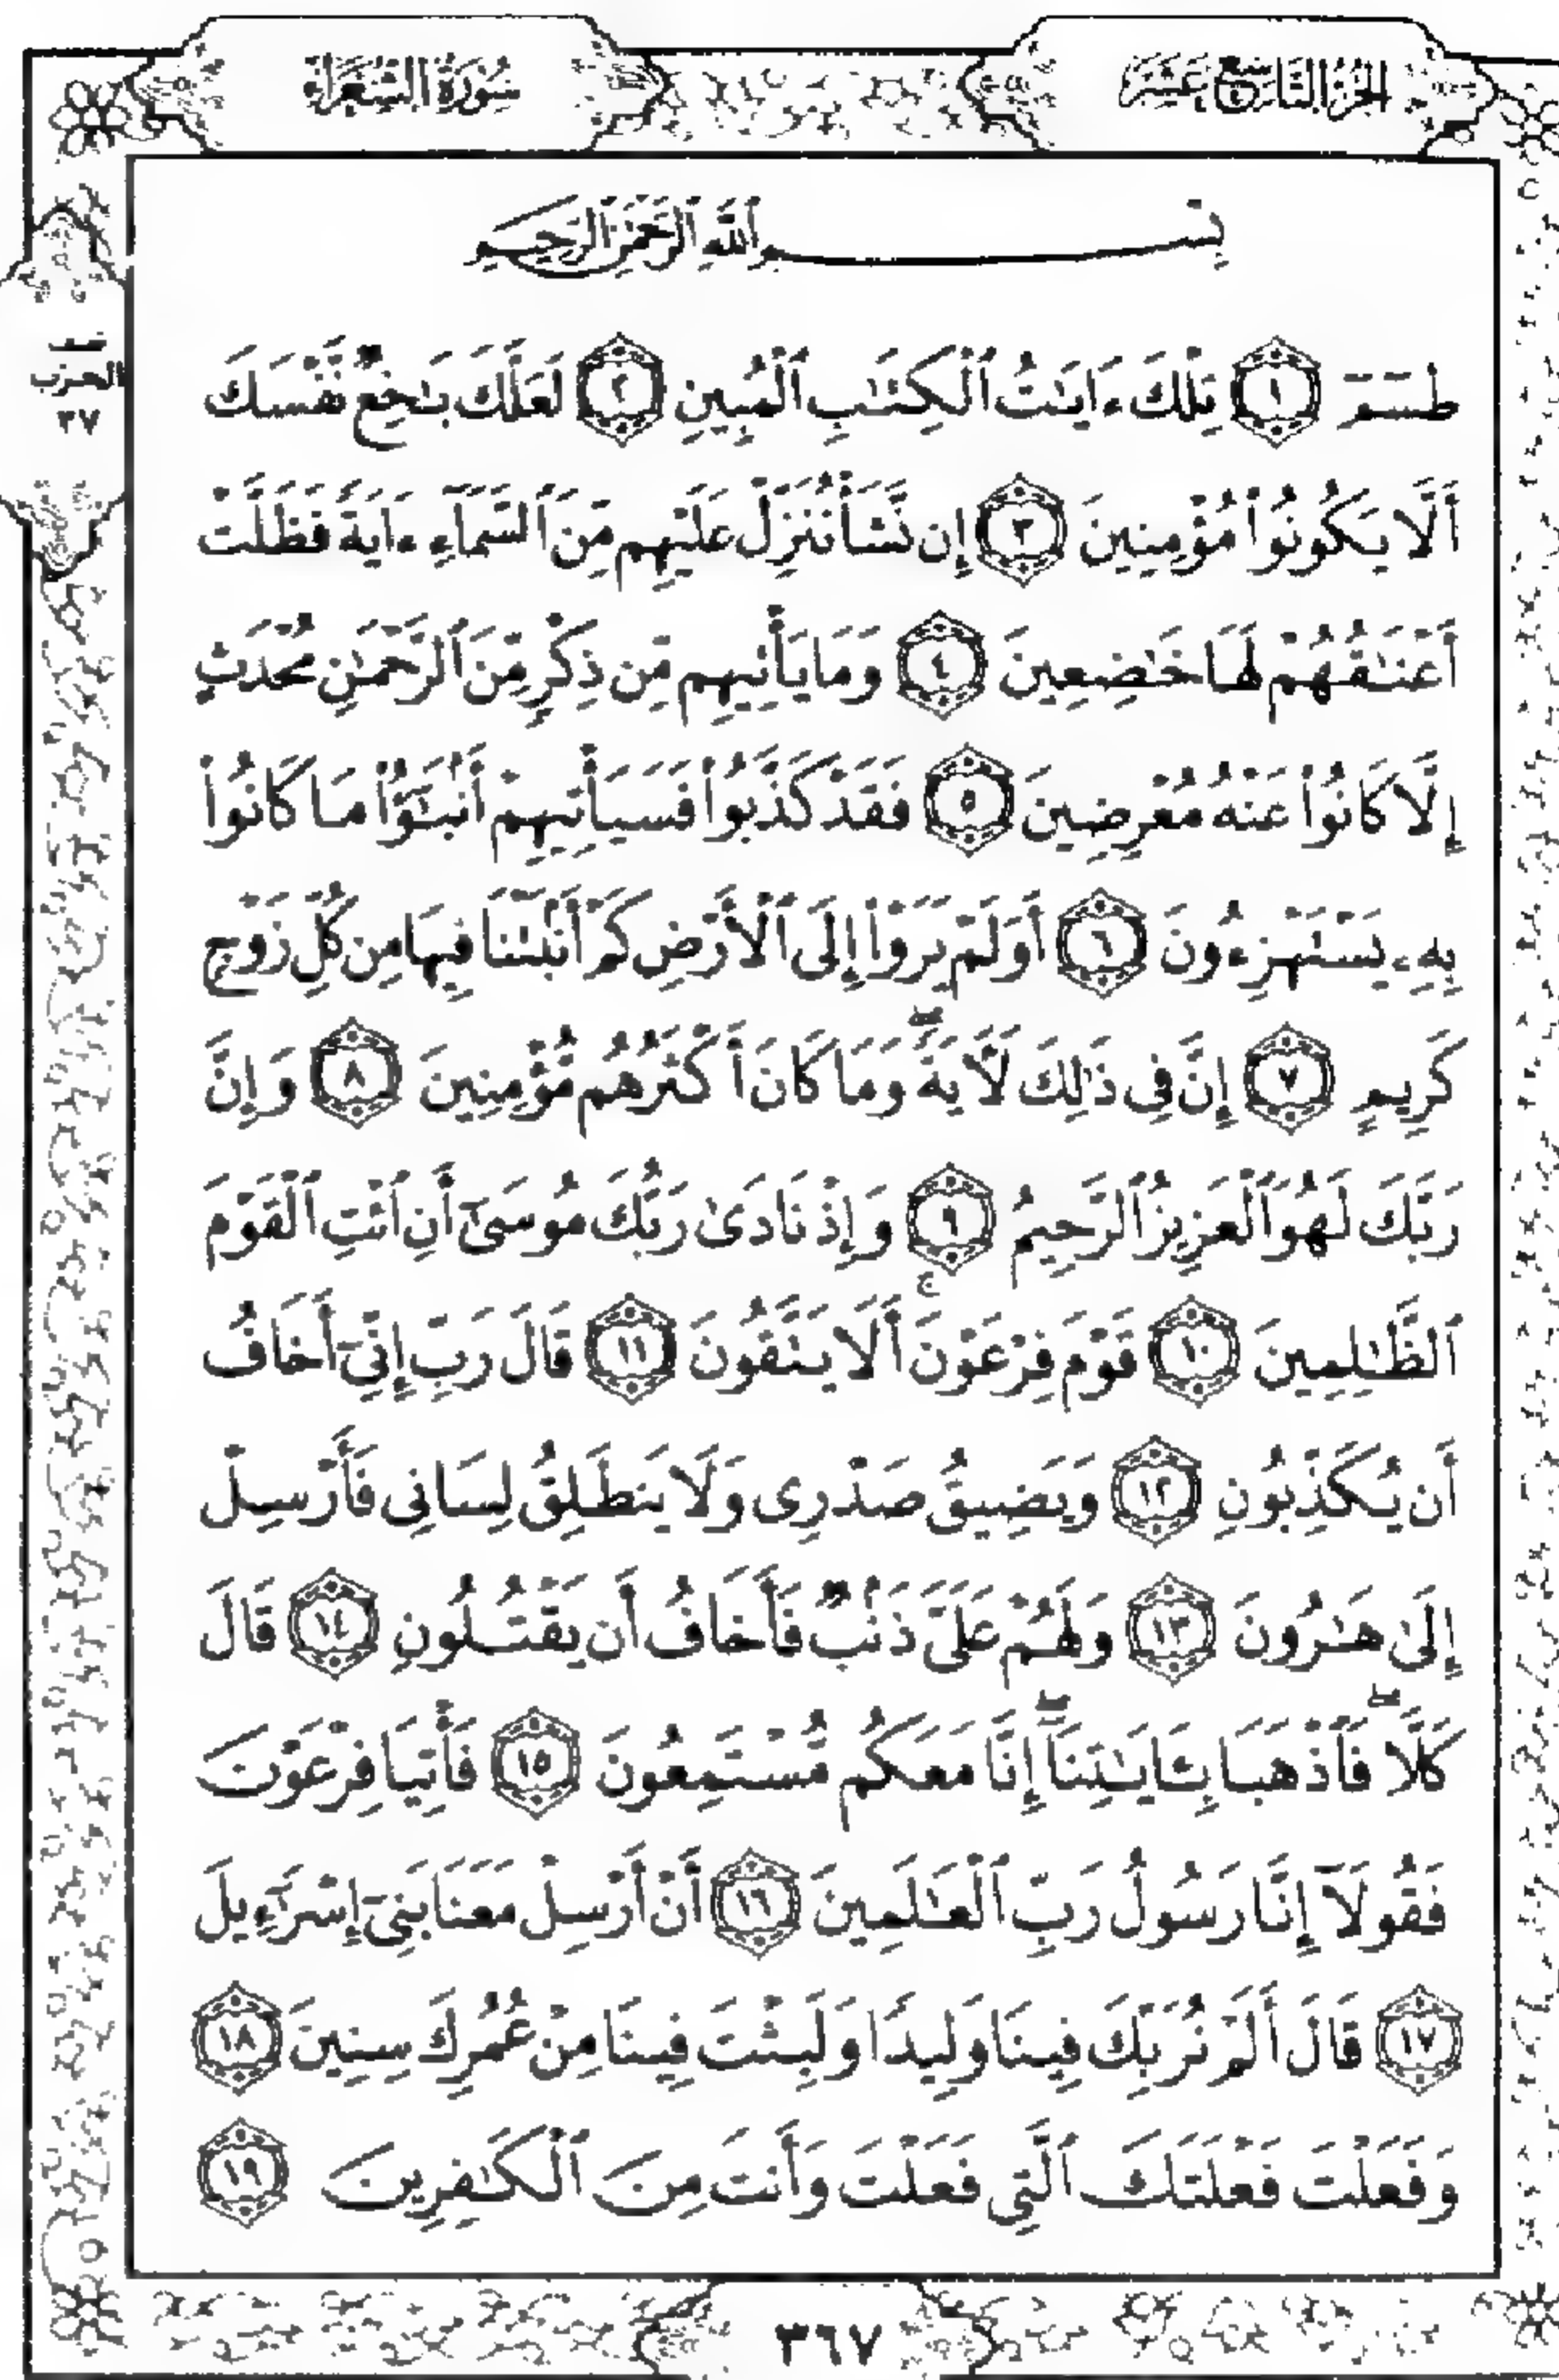 الجزء التاسع عشر
سورة الشعراء
بِسْمِ ٱللَّهِ ٱلرَّحْمَٰنِ ٱلرَّحِيمِ
الحزب
٣٧
طسٓمٓ ١ تِلْكَ ءَايَٰتُ ٱلْكِتَٰبِ ٱلْمُبِينِ ٢ لَعَلَّكَ بَٰخِعٌ نَّفْسَكَ
أَلَّا يَكُونُوا۟ مُؤْمِنِينَ ٣ إِن نَّشَأْ نُنَزِّلْ عَلَيْهِم مِّنَ ٱلسَّمَآءِ ءَايَةً فَظَلَّتْ
أَعْنَٰقُهُمْ لَهَا خَٰضِعِينَ ٤ وَمَا يَأْتِيهِم مِّن ذِكْرٍ مِّنَ ٱلرَّحْمَٰنِ مُحْدَثٍ
إِلَّا كَانُوا۟ عَنْهُ مُعْرِضِينَ ٥ فَقَدْ كَذَّبُوا۟ فَسَيَأْتِيهِمْ أَنۢبَٰٓؤُا۟ مَا كَانُوا۟
بِهِۦ يَسْتَهْزِءُونَ ٦ أَوَلَمْ يَرَوْا۟ إِلَى ٱلْأَرْضِ كَمْ أَنۢبَتْنَا فِيهَا مِن كُلِّ زَوْجٍ
كَرِيمٍ ٧ إِنَّ فِى ذَٰلِكَ لَءَايَةً ۖ وَمَا كَانَ أَكْثَرُهُم مُّؤْمِنِينَ ٨ وَإِنَّ
رَبَّكَ لَهُوَ ٱلْعَزِيزُ ٱلرَّحِيمُ ٩ وَإِذْ نَادَىٰ رَبُّكَ مُوسَىٰٓ أَنِ ٱئْتِ ٱلْقَوْمَ
ٱلظَّٰلِمِينَ ١٠ قَوْمَ فِرْعَوْنَ ۚ أَلَا يَتَّقُونَ ١١ قَالَ رَبِّ إِنِّىٓ أَخَافُ
أَن يُكَذِّبُونِ ١٢ وَيَضِيقُ صَدْرِى وَلَا يَنطَلِقُ لِسَانِى فَأَرْسِلْ
إِلَىٰ هَٰرُونَ ١٣ وَلَهُمْ عَلَىَّ ذَنۢبٌ فَأَخَافُ أَن يَقْتُلُونِ ١٤ قَالَ
كَلَّا ۖ فَٱذْهَبَا بِـَٔايَٰتِنَآ ۖ إِنَّا مَعَكُم مُّسْتَمِعُونَ ١٥ فَأْتِيَا فِرْعَوْنَ
فَقُولَآ إِنَّا رَسُولُ رَبِّ ٱلْعَٰلَمِينَ ١٦ أَنْ أَرْسِلْ مَعَنَا بَنِىٓ إِسْرَٰٓءِيلَ
١٧ قَالَ أَلَمْ نُرَبِّكَ فِينَا وَلِيدًا وَلَبِثْتَ فِينَا مِنْ عُمُرِكَ سِنِينَ ١٨
وَفَعَلْتَ فَعْلَتَكَ ٱلَّتِى فَعَلْتَ وَأَنتَ مِنَ ٱلْكَٰفِرِينَ ١٩
٣٦٧